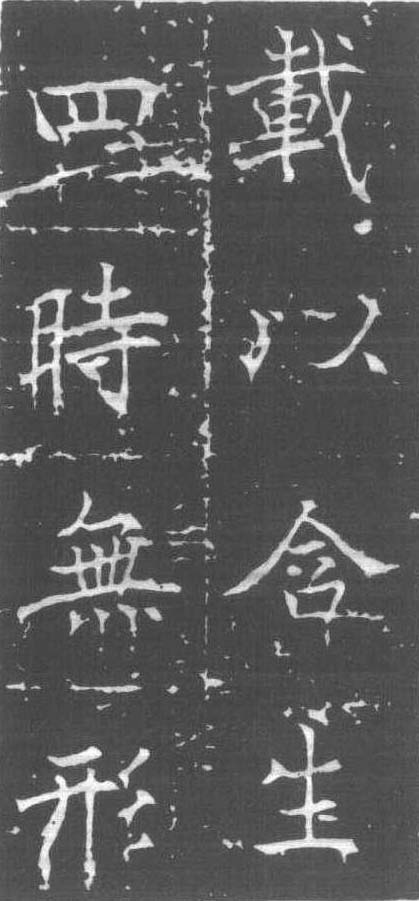 載以含生
四時無形